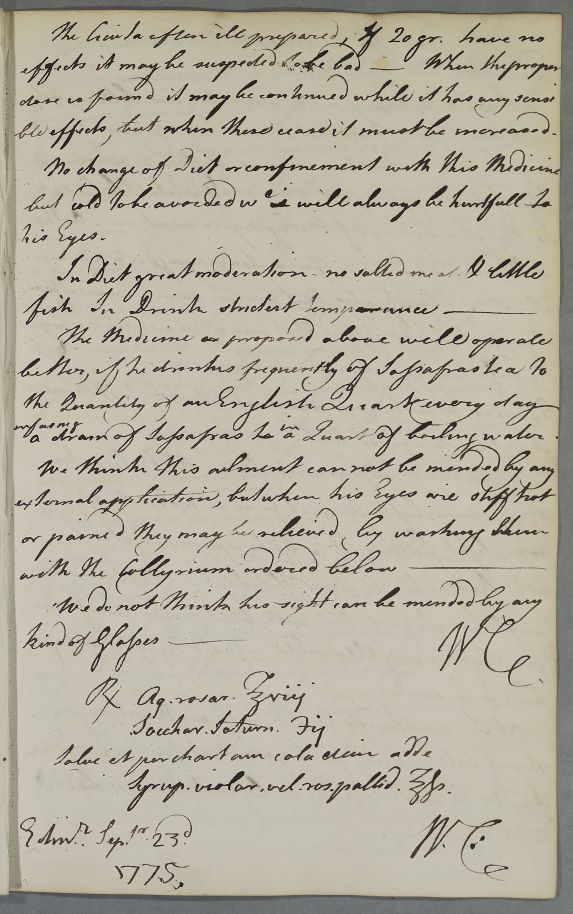 The Cicuta often ill prepared, if 20 gr. have no
effects it may be suspected to be bad — When the proper
dose is found it may be continued while it has any sensi
ble effects, but when these cease it must be increased.
No change of Diet or confinement with this Medicine
but cold to be avoided wch will always be hurtfull to
his Eyes.
In Diet great moderation - no salted meat & little
fish In Drink strictest temperance —
The Medicine as proposed above will operate
better, if he drinks frequently of Sassafras tea to
the Quantity of an English Quart every day
infusing
a dram of Sassafras to in a Quart of boiling water.
We think this ailment cannot be mended by any
external application, but when his Eyes are stiff hot
or pained they may be relieved by washing them
with the Collyrium ordered below —
We do not think his sight can be mended by any
kind of Glasses —
WC
℞ Aq. rosar. ℥viij
Sacchar. Saturn. ℈ij
Solve et per chartam cola dein adde
Syrup. violar. vel. ros. pallid. ℥ss.
Edinr. Sepr. 23d W. C:
1775.